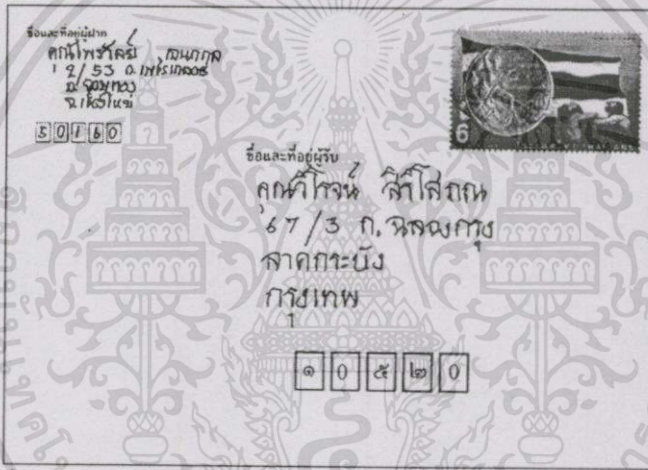 ชื่อและที่อยู่ผู้ฝาก
คุณไพรวัลย์
12/53 ถ.เพชรเกษม
อ.จอมทอง
จ.เชียงใหม่
50160
6
ชื่อและที่อยู่ผู้รับ
คุณวิโรจน์ สิริโสภณ
67/3 ถ.ฉลองกรุง
ลาดกระบัง
กรุงเทพ
๑0๕๒0